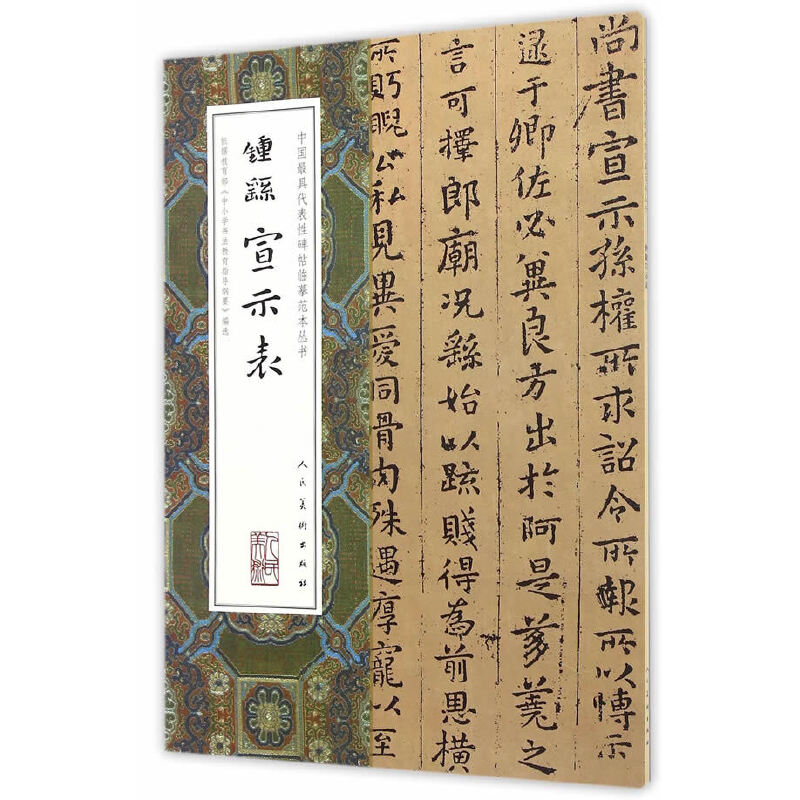 尚書宣示孫權所求詔令所報所以博示
逮于卿佐必冀良方出於阿是芻蕘之
言可擇郎廟况繇始以疏賤得為前恩橫
所眄睨公私見異愛同骨肉殊遇厚寵以至
中国最具代表性碑帖临摹范本丛书
鍾繇 宣示表
依据教育部《中小学书法教育指导纲要》编选
人民美術出版社
人民美術